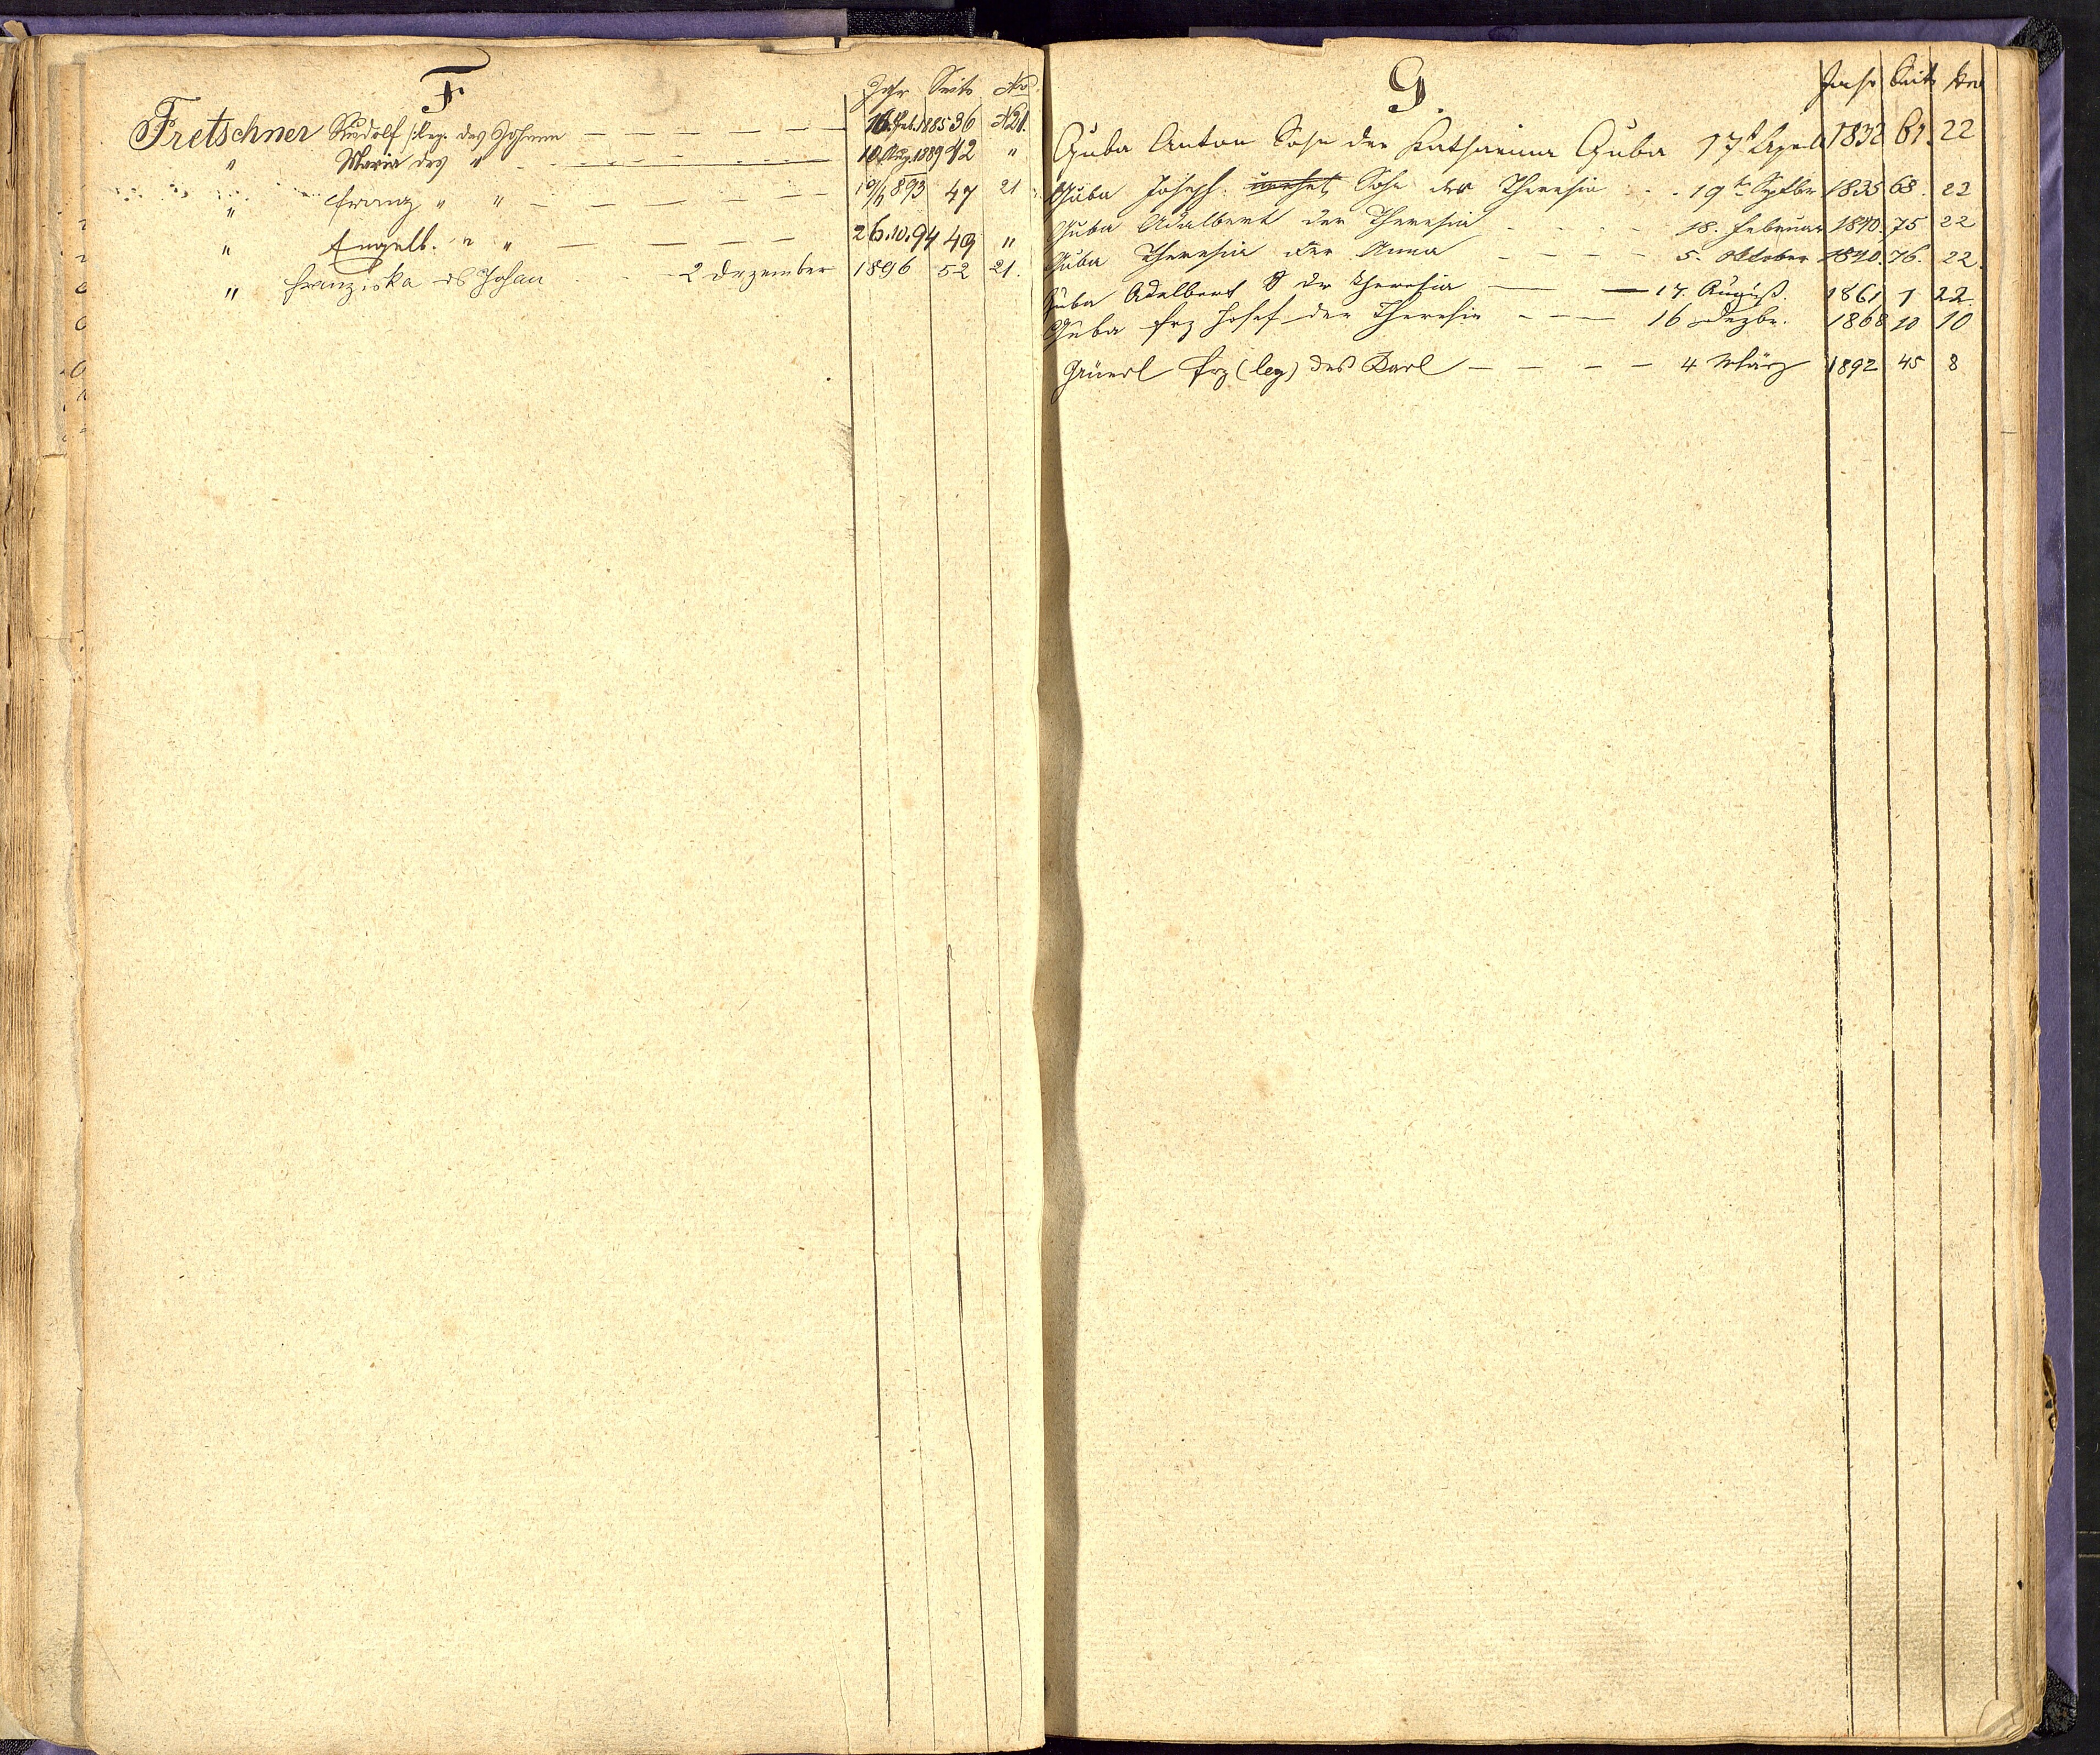 F
Jahr Seite No
Fretschner Rudolf /:leg. des Johann — — — — — 16. Feb. 1885 36 N 21.
" Maria des " — — — — 10 Aug. 1889 42 "
" Franz " " — — — — — 1893 47 21
" Engelb. " " — — — — 26.10.94 49 "
" Franziska des Johan 2 Dezember 1896 52 21.
G.
Jahr Seite
Guba Anton Sohn der Katharina Guba 17t April 1832 61. 22
Guba Joseph. Sohn der Theresia . . 19te Septbr 1835 68. 22
Guba Adalbert der Theresia - - - - 18. Februar 1840. 75 22
Guba Theresia der Anna - - - - 5. Oktober 1840. 76. 22.
Guba Adalbert der Theresia — — 17. August. 1861 1 22.
Guba Frz Josef der Theresia - - — 16 Dezbr. 1868 10 10
Frz (leg) des Karl — — — — 4 März 1892 45 8